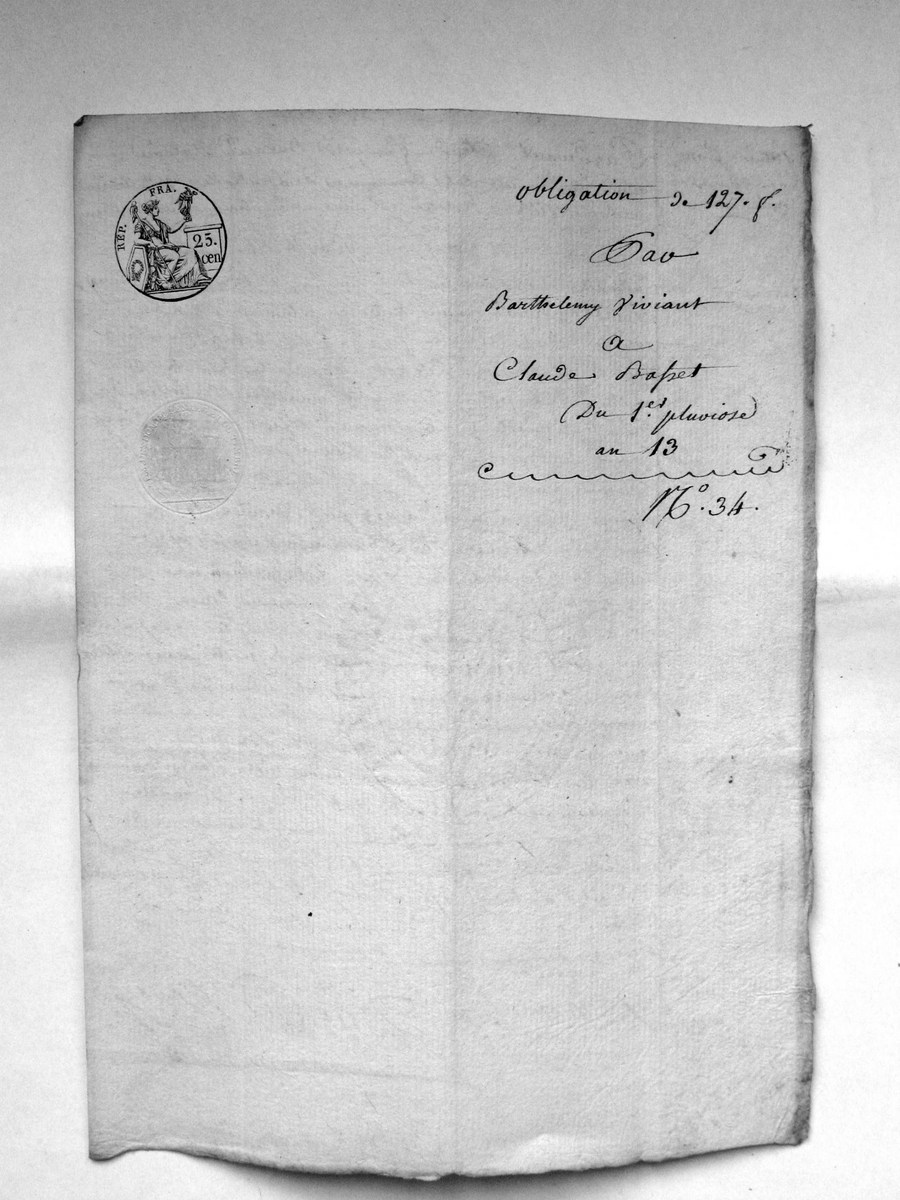 RÉP. FRA. NE
25. cen
obligation de 127. f.
Par
Barthelemy Viviant
a
Claude Basset
Du 1.er pluviose
an 13
N.o 34.